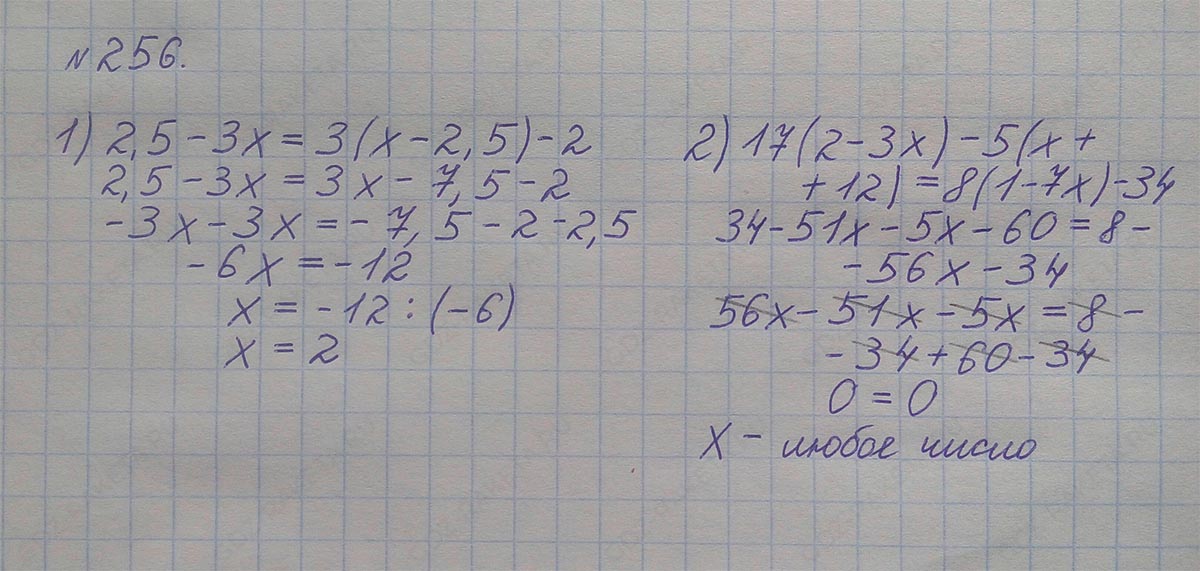 №256.
1) 2,5-3x=3(x-2,5)-2
2,5-3x=3x-7,5-2
-3x-3x=-7,5-2-2,5
-6x=-12
x=-12:(-6)
x=2
2) 17(2-3x)-5(x+
+12)=8(1-7x)-34
34-51x-5x-60=8-
-56x-34
56x-51x-5x=8-
-34+60-34
0=0
X - любое число